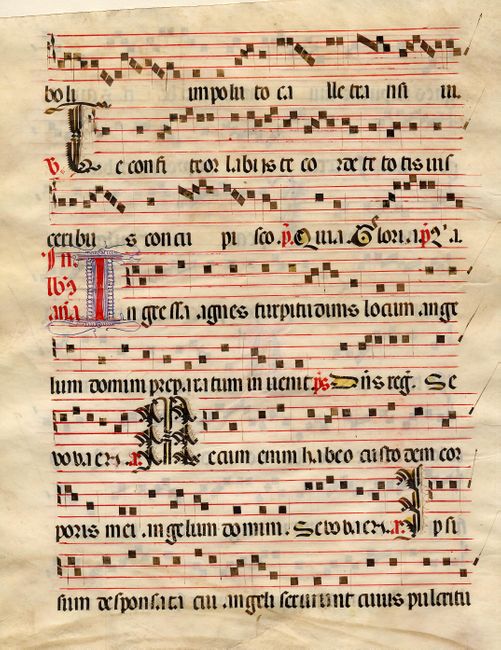 boli impolluto calle transivi.
V. Te confiteor labiis te corde te totis vis
ceribus concupisco. P. Quia. Gloria. P. Quia.
In
laud
ana Ingressa agnes turpitudinis locum ange
lum domini preparatum invenit ps Dns reg. Se
vovaen. a. Mecum enim habeo custodem cor
poris mei angelum domini. Sevovaen. a. Ipsi
sum desponsata cui angeli serviunt cuius pulcritu